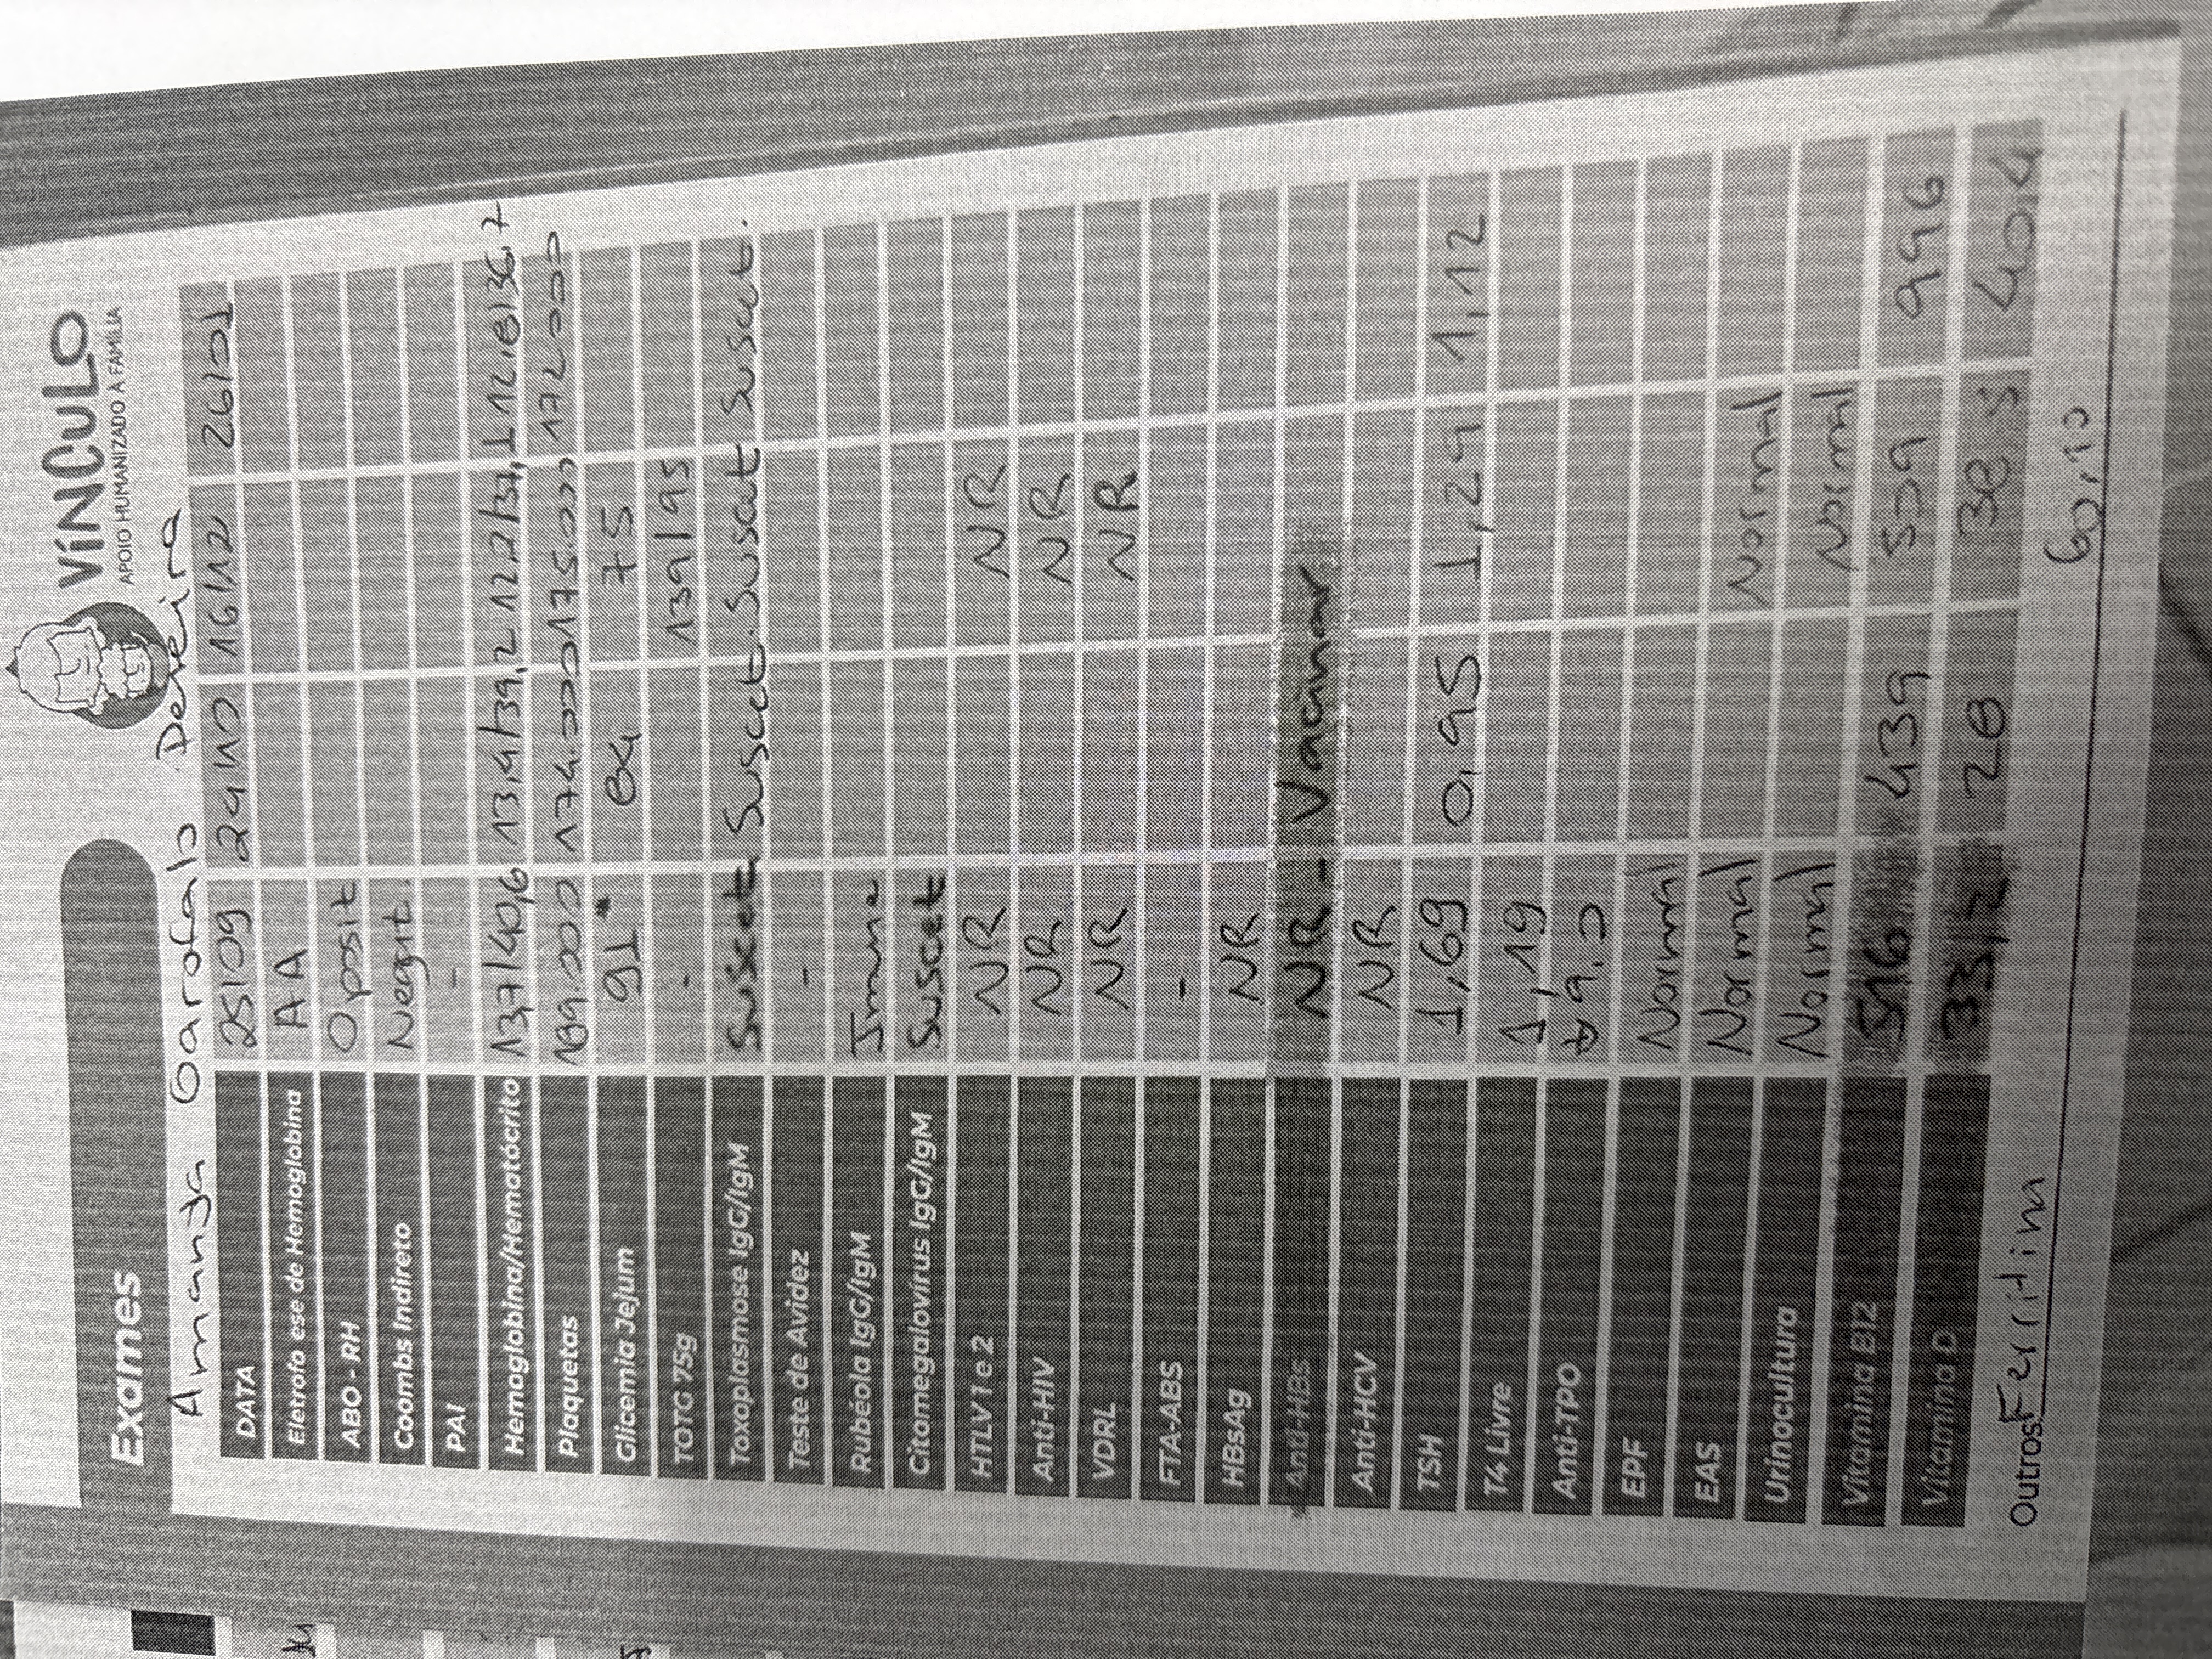 Exames
VíNCuLO
APOIO HUMANIZADO À FAMÍLIA
Amanda Garofalo
DATA 25/09 29/10 16/12 26/01
Eletrofo ese de Hemoglobina AA
ABO - RH O posit
Coombs Indireto Negat.
PAI -
Hemoglobina/Hematócrito 13,7/40,6 13,4/39,2 12,2/37,1 12,8/36,7
Plaquetas 189.000 174.000 175.000 172000
Glicemia Jejum 91 84 75
TOTG 75g - 139/95
Toxoplasmose IgG/IgM Suscet Suscet. Suscet Suscet.
Teste de Avidez -
Rubéola IgG/IgM Imune
Citomegalovírus IgG/IgM Suscet
HTLV 1 e 2 NR NR
Anti-HIV NR NR
VDRL NR NR
FTA-ABS -
HBsAg NR
Anti-HBs NR - Vacinar
Anti-HCV NR
TSH 1,69 0,95 1,29 1,12
T4 Livre 1,19
Anti-TPO
EPF Normal
EAS Normal Normal
Urinocultura Normal Normal
Vitamina B12 516 439 509 996
Vitamina D 33,2 28 38,5 40,4
Outros Ferritina 60,10